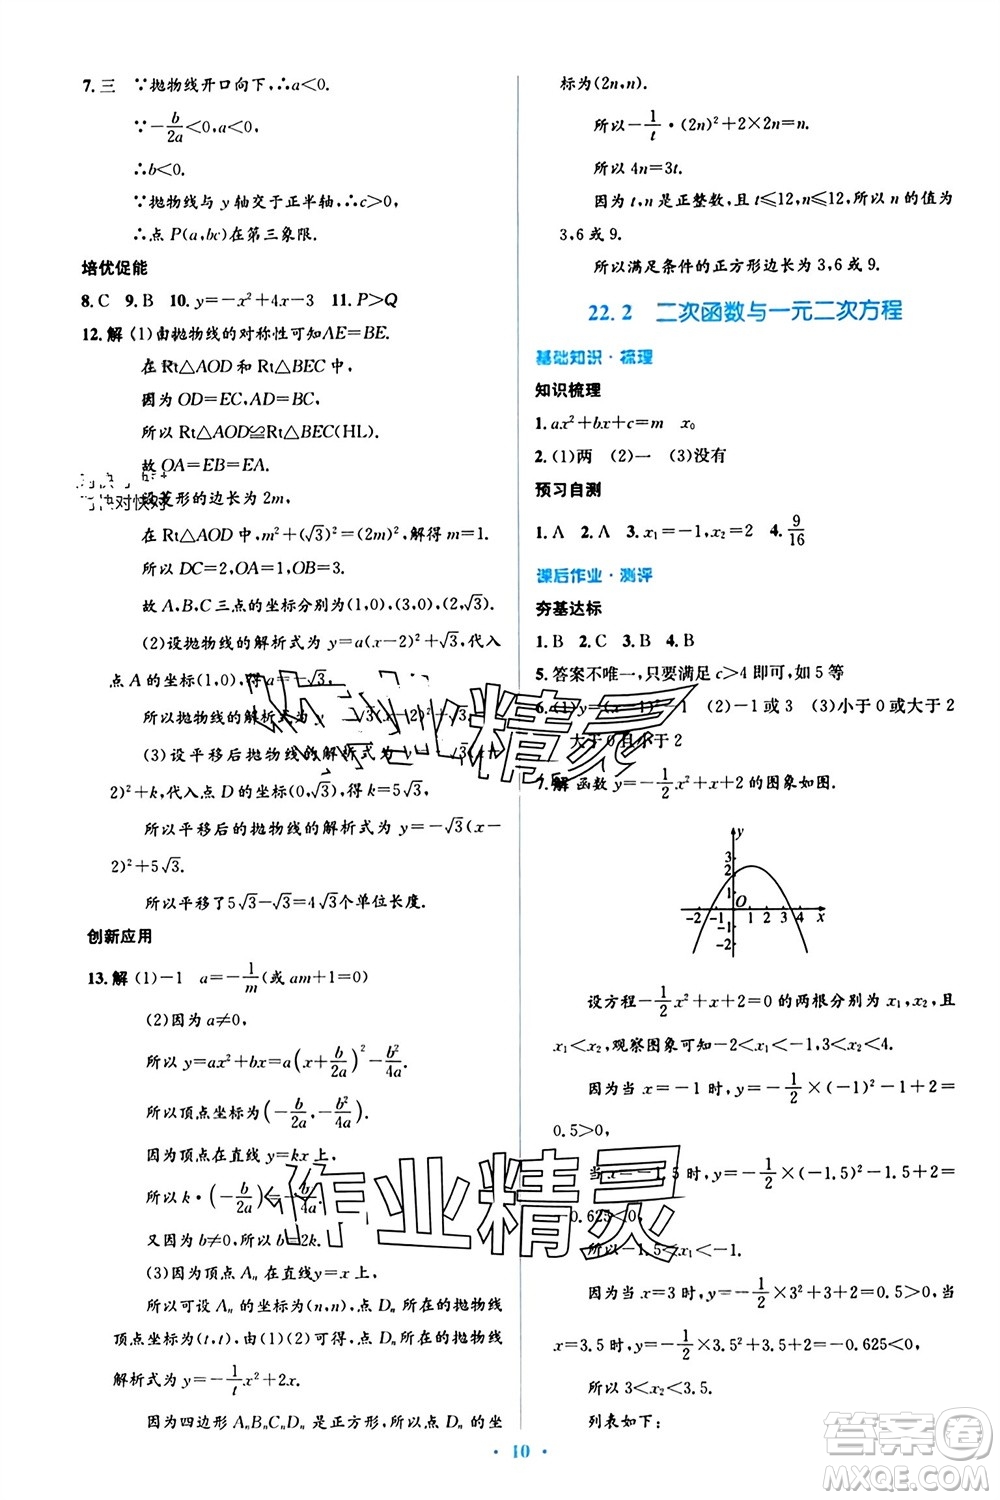 7.三 ∵抛物线开口向下,∴a<0.
∵-b/2a<0,a<0,
∴b<0.
∵抛物线与 y 轴交于正半轴,∴c>0,
∴点 P(a,bc)在第三象限.
培优促能
8.C 9.B 10.y=-x²+4x-3 11.P>Q
12.解 (1)由抛物线的对称性可知AE=BE.
在 Rt△AOD 和 Rt△BEC 中,
因为 OD=EC,AD=BC,
所以 Rt△AOD≌Rt△BEC(HL).
故 OA=EB=EA.
设菱形的边长为 2m,
在 Rt△AOD 中,m²+(√3)²=(2m)²,解得m=1.
所以 DC=2,OA=1,OB=3.
故 A,B,C 三点的坐标分别为(1,0),(3,0),(2,√3).
(2)设抛物线的解析式为 y=a(x-2)²+√3,代入
点 A 的坐标(1,0),得 a=-√3.
所以抛物线的解析式为 y=-√3(x-2)²+√3.
(3)设平移后抛物线的解析式为 y=-√3(x-
2)²+k,代入点 D 的坐标(0,√3),得 k=5√3.
所以平移后的抛物线的解析式为 y=-√3(x-
2)²+5√3.
所以平移了5√3-√3=4√3个单位长度.
创新应用
13.解 (1)-1 a=-1/m(或 am+1=0)
(2)因为 a≠0,
所以 y=ax²+bx=a(x+b/2a)²-b²/4a.
所以顶点坐标为(-b/2a,-b²/4a).
因为顶点在直线 y=kx 上,
所以 k·(-b/2a)=-b²/4a.
又因为 b≠0,所以 b=2k.
(3)因为顶点 Aₙ 在直线y=x 上,
所以可设 Aₙ 的坐标为(n,n),点 Dₙ 所在的抛物线
顶点坐标为(t,t),由(1)(2)可得,点 Dₙ 所在的抛物线
解析式为 y=-1/t x²+2x.
因为四边形 AₙBₙCₙDₙ 是正方形,所以点 Dₙ 的坐
标为(2n,n).
所以-1/t·(2n)²+2×2n=n.
所以 4n=3t.
因为 t,n 是正整数,且 t≤12,n≤12,所以 n 的值为
3,6 或 9.
所以满足条件的正方形边长为 3,6 或 9.
22.2 二次函数与一元二次方程
基础知识·梳理
知识梳理
1.ax²+bx+c=m x₀
2.(1)两 (2)一 (3)没有
预习自测
1.A 2.A 3.x₁=-1,x₂=2 4.9/16
课后作业·测评
夯基达标
1.B 2.C 3.B 4.B
5.答案不唯一,只要满足 c>4 即可,如 5 等
6.(1)y=(x-1)²-1 (2)-1或 3 (3)小于 0 或大于 2
大于 0 且小于 2
7.解 函数 y=-1/2x²+x+2 的图象如图.
y
3
2
1
O
-2 -1 1 2 3 4 x
-1
-2
设方程-1/2x²+x+2=0 的两根分别为 x₁,x₂,且
x₁<x₂,观察图象可知-2<x₁<-1,3<x₂<4.
因为当 x=-1 时,y=-1/2×(-1)²-1+2=
0.5>0,
当 x=-1.5 时,y=-1/2×(-1.5)²-1.5+2=
-0.625<0,
所以-1.5<x₁<-1.
因为当 x=3 时,y=-1/2×3²+3+2=0.5>0,当
x=3.5 时,y=-1/2×3.5²+3.5+2=-0.625<0,
所以 3<x₂<3.5.
列表如下:
· 10 ·
作业精灵
作业精灵
答案圈
MXQE.COM